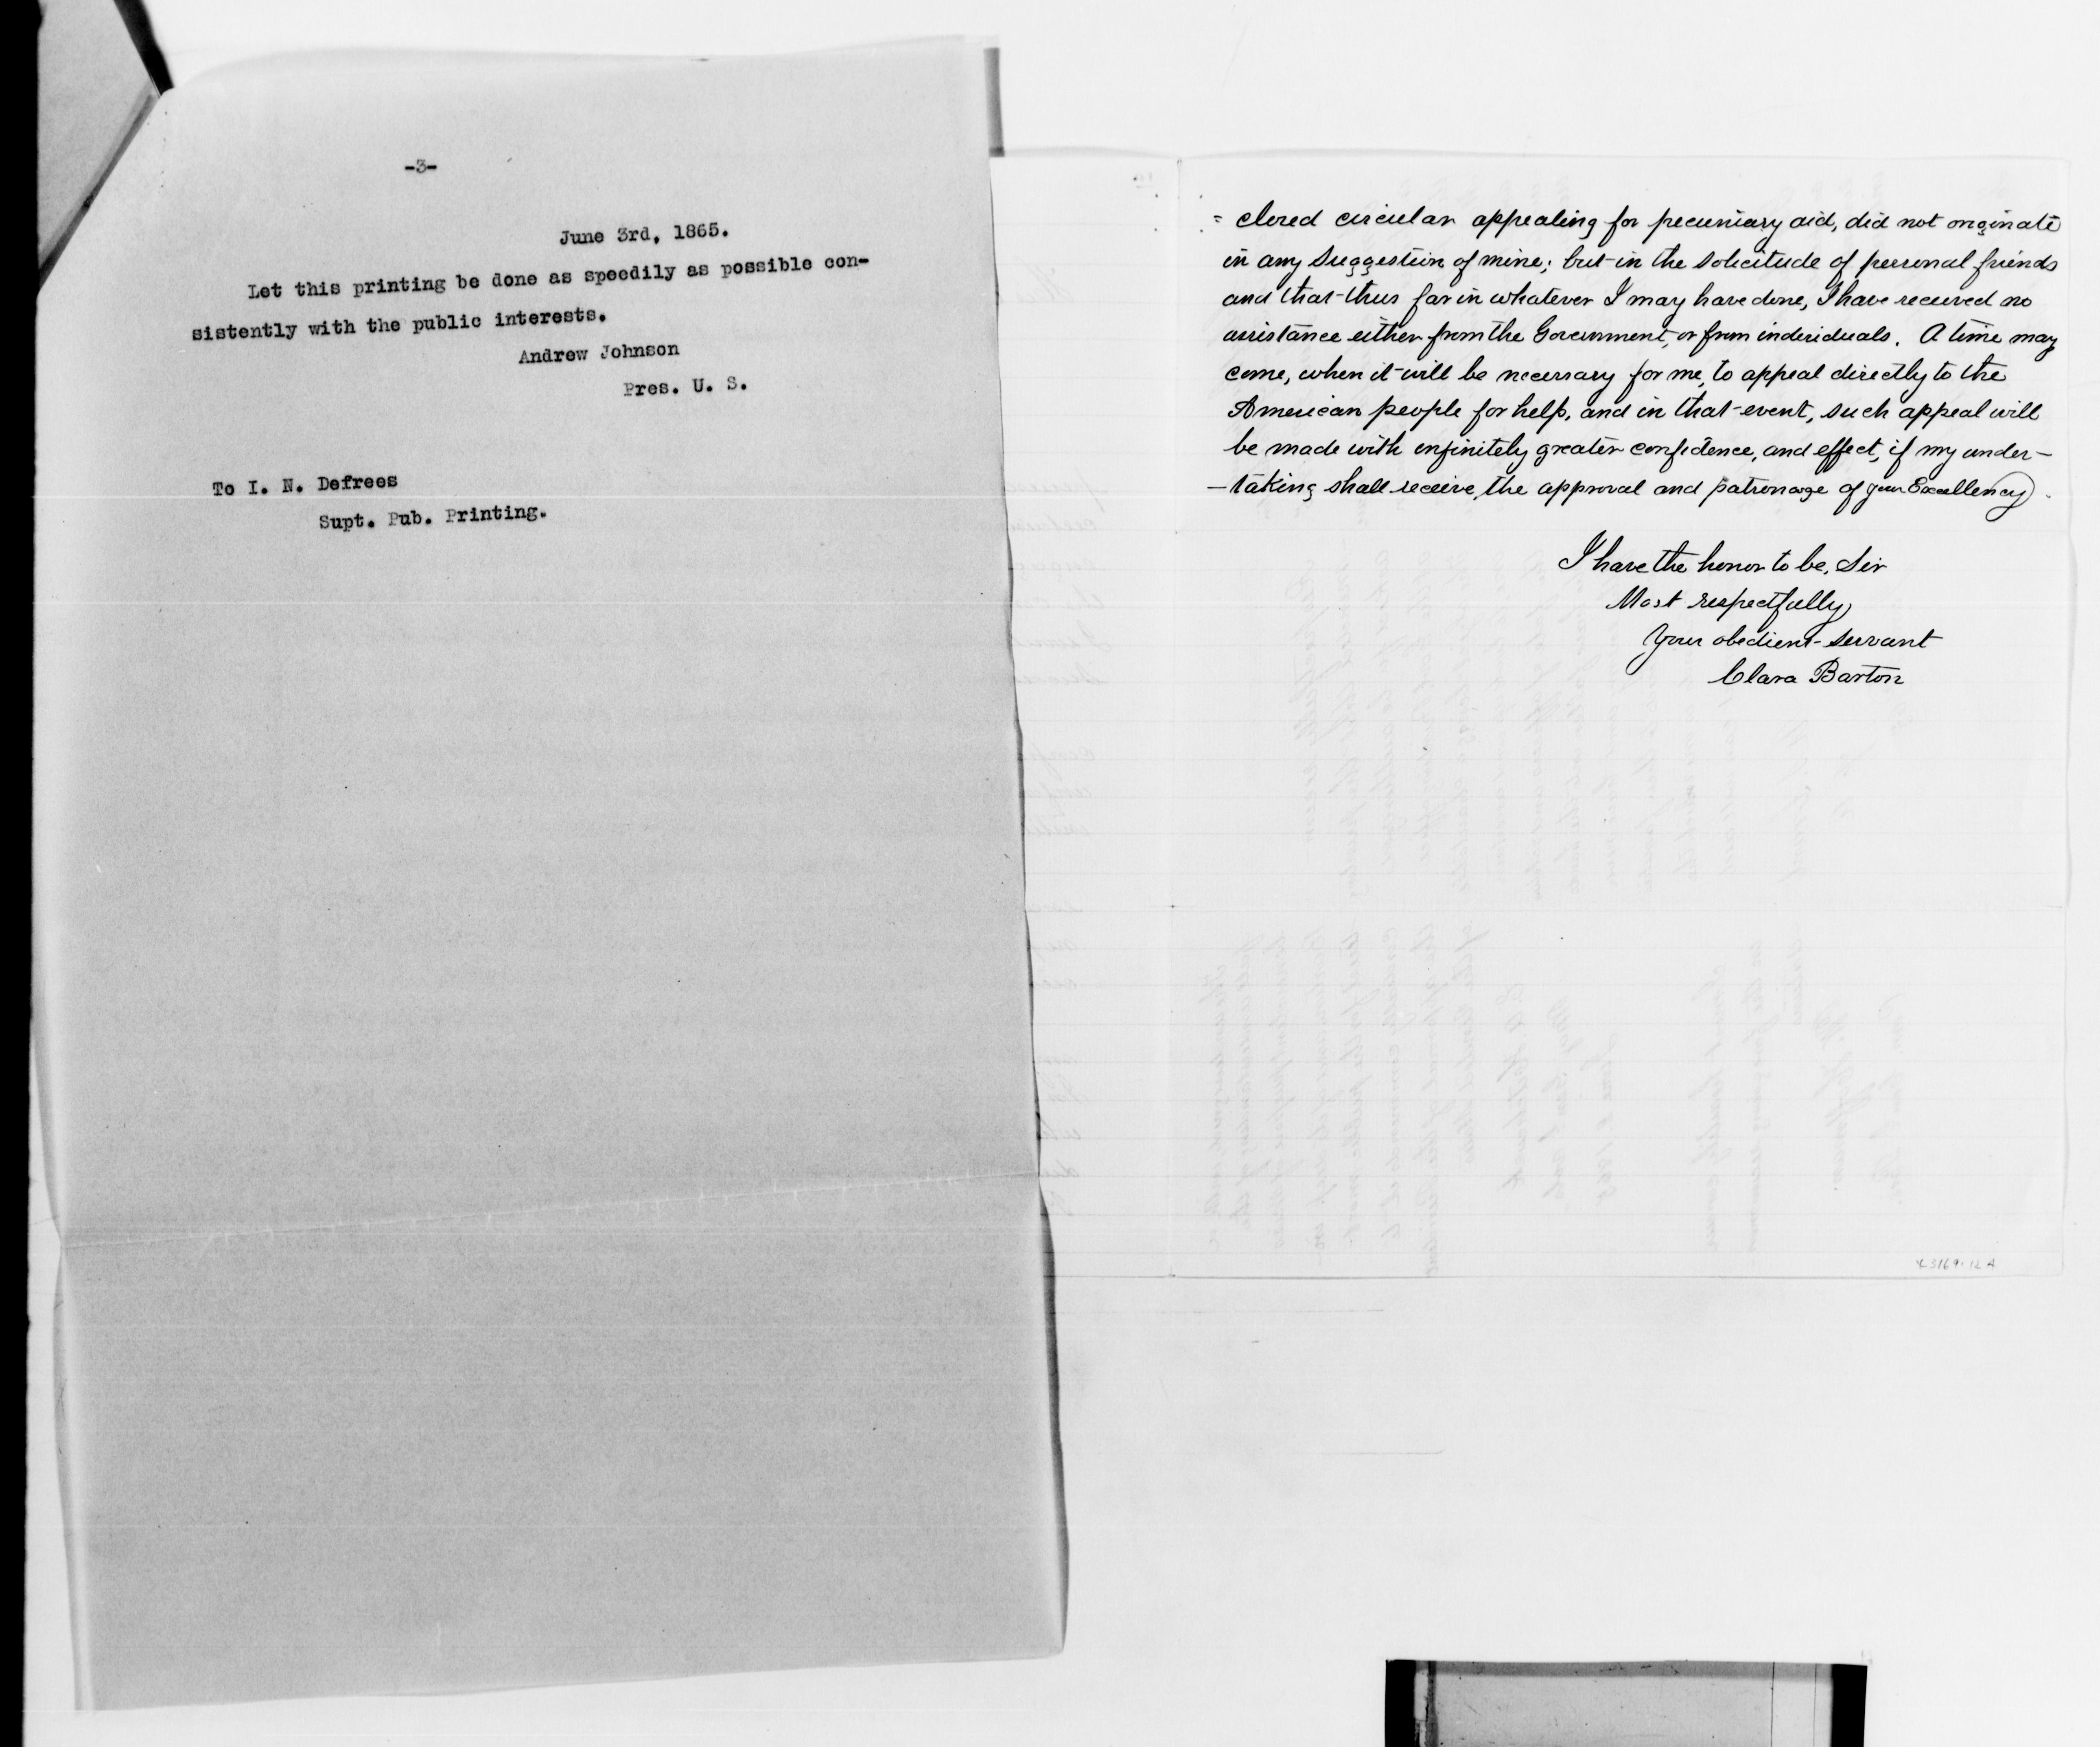 -3-
June 3rd, 1865.
Let this printing be done as speedily as possible con-
sistently with the public interests.
Andrew Johnson
Pres. U. S.
To I. N. Defrees
Supt. Pub. Printing.
= closed circular appealing for pecuniary aid, did not originate
in any suggestion of mine; but in the solicitude of personal friends
and that thus far in whatever I may have done, I have received no
assistance either from the Government, or from individuals. A time may
come, when it will be necessary for me, to appeal directly to the
American people for help, and in that event, such appeal will
be made with infinitely greater confidence, and effect, if my under-
-taking shall receive, the approval and patronage of your Excellency.
I have the honor to be, Sir
Most respectfully
Your obedient servant
Clara Barton